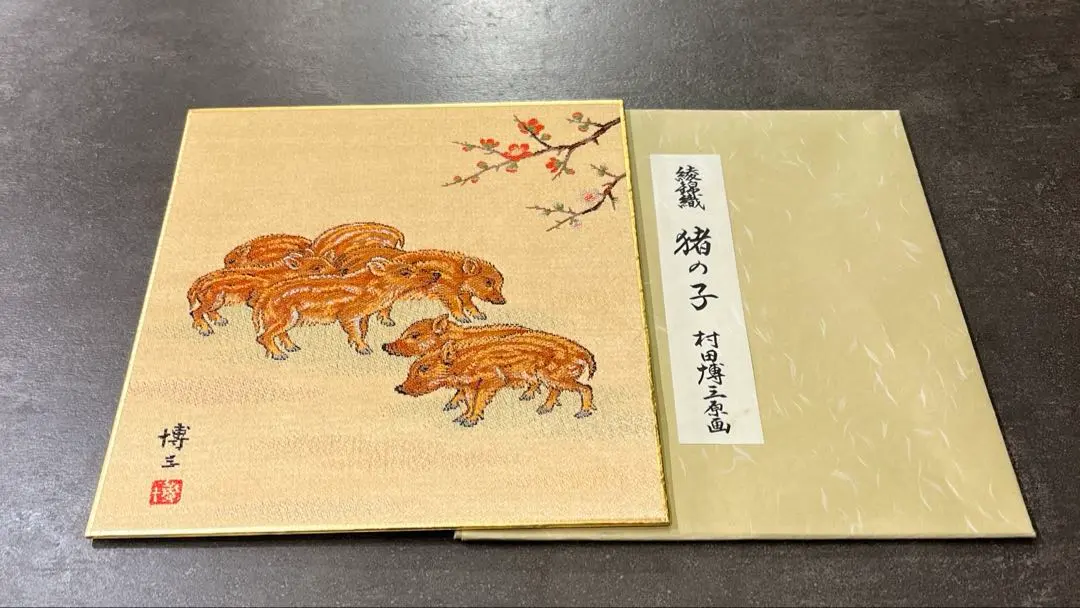 綾錦織
猪の子
村田博三原画
博三